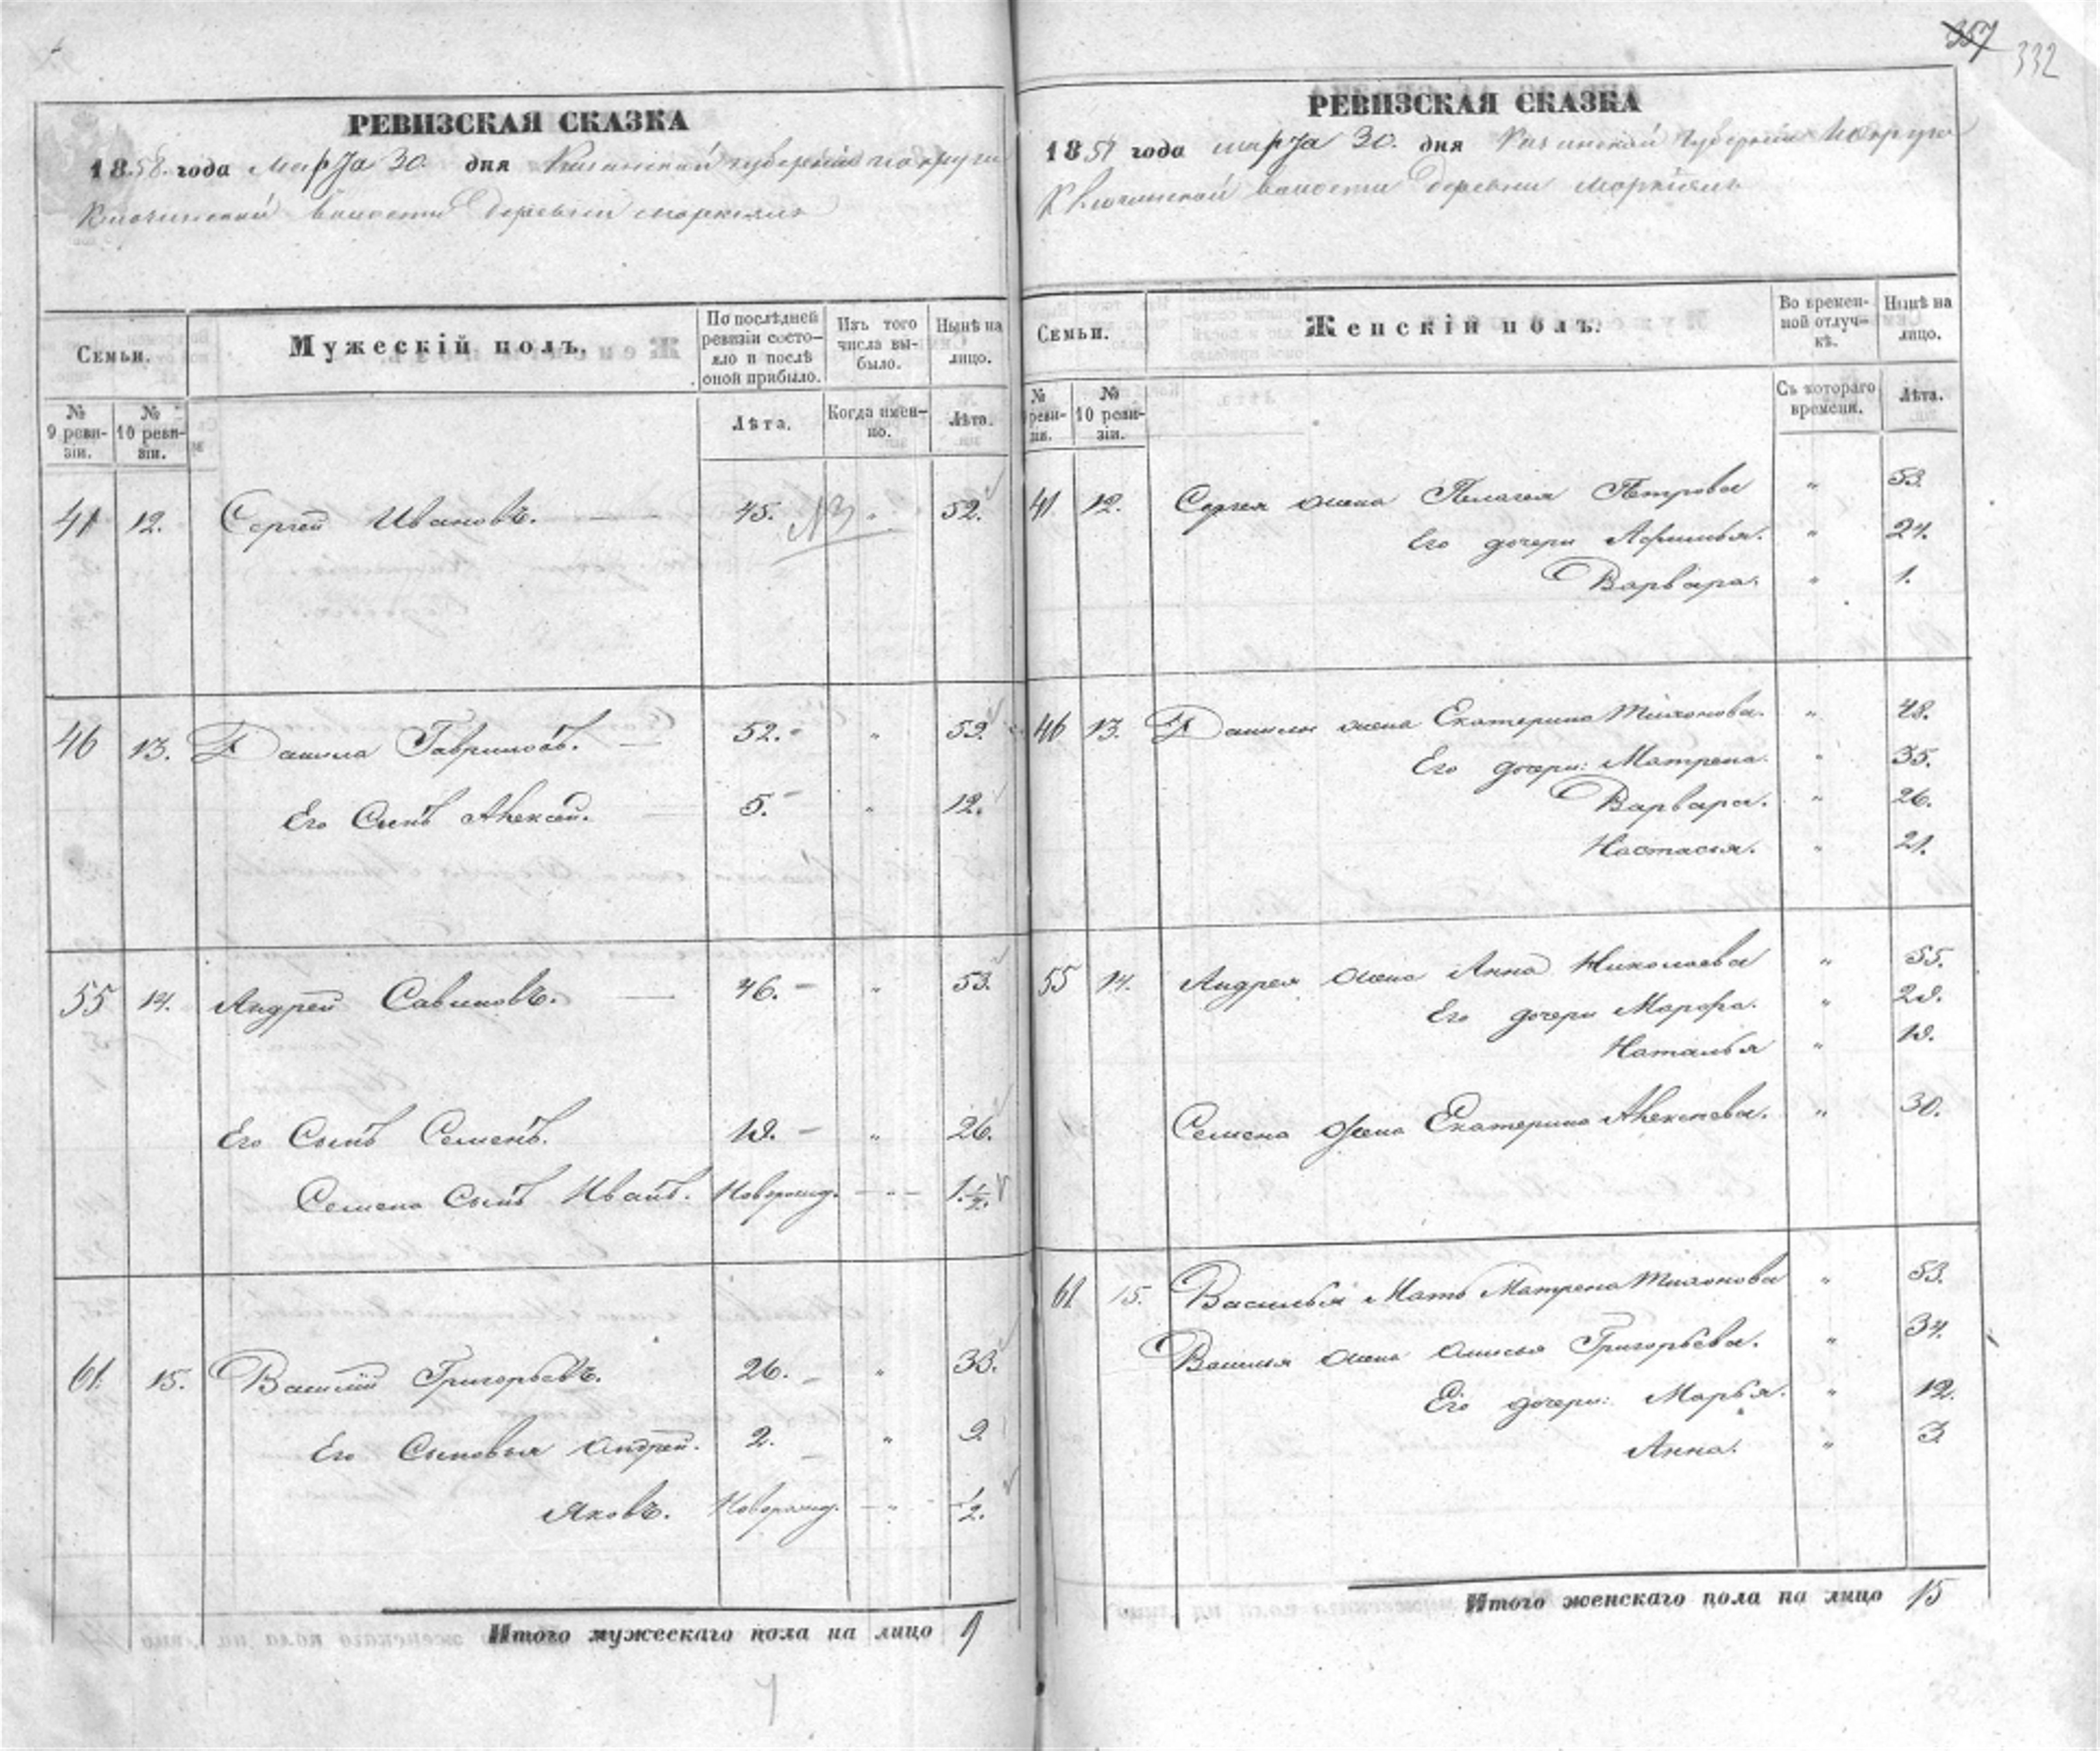 357 332
РЕВИЗСКАЯ СКАЗКА
1858. года Марта 30. дня Казанской губернии и округи
Ключинской волости Деревни
Семьи.
Мужескій полъ.
По послѣдней ревизіи состояло и послѣ оной прибыло.
Изъ того числа выбыло.
Нынѣ на лицо.
№ 9 ревизіи.
№ 10 ревизіи.
Лѣта.
Когда именно.
Лѣта.
41 12. Сергей Ивановъ. — 45. „ 52.
46 13. Данила Гавриловъ. — 52. „ 59.
Его Сынъ Алексей. 5. „ 12.
55 14. Андрей Савиновъ. — 46. „ 53.
Его Сынъ Семенъ. 19. „ 26.
Семена Сынъ Иванъ. Новорожд. — „ — 1. 1/2.
61. 15. Василій Григорьевъ. 26. „ 33.
Его Сыновья Андрей. 2. „ 9.
Яковъ. Новорожд. — „ 1/2.
Итого мужескаго пола на лицо 9
РЕВИЗСКАЯ СКАЗКА
1858 года марта 30. дня Казанской Губернии И округи
Ключинской волости Деревни
Семьи.
Женскій полъ.
Во временной отлучкѣ.
Нынѣ на лицо.
№ 9 ревизіи.
№ 10 ревизіи.
Съ котораго времени.
Лѣта.
41 12. Сергея жена Пелагея Петрова „ 53.
Его дочери Афимья. „ 24.
Варвара. „ 1.
46 13. Данилы жена Екатерина Тихонова. „ 48.
Его дочери: Матрена. „ 35.
Варвара. „ 26.
Настасья. „ 21.
55 14. Андрея жена Анна Николаева „ 55.
Его дочери Марфа. „ 29.
Наталья „ 19.
Семена жена Екатерина Алексеева. „ 30.
61 15. Василья Мать Матрена Тихонова „ 53.
Василья жена Анисья Григорьева. „ 34.
Его дочери: Марья. „ 12.
Анна. „ 3.
Итого женскаго пола на лицо 15